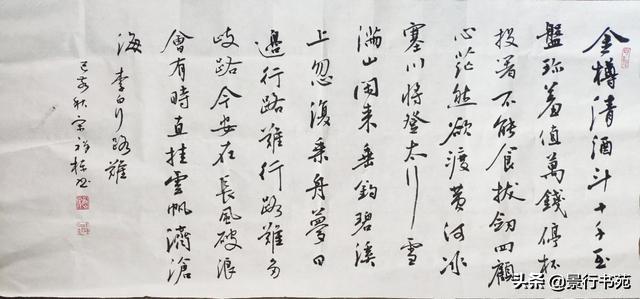 金樽清酒斗十千玉
盤珍羞值萬錢停杯
投箸不能食拔劍四顧
心茫然欲渡黃河冰
塞川將登太行雪
滿山閑来垂釣碧溪
上忽復乘舟夢日
邊行路難行路難多
歧路今安在長風破浪
會有時直挂雲帆濟滄
海 李白行路難
己亥秋
头条 @景行书苑